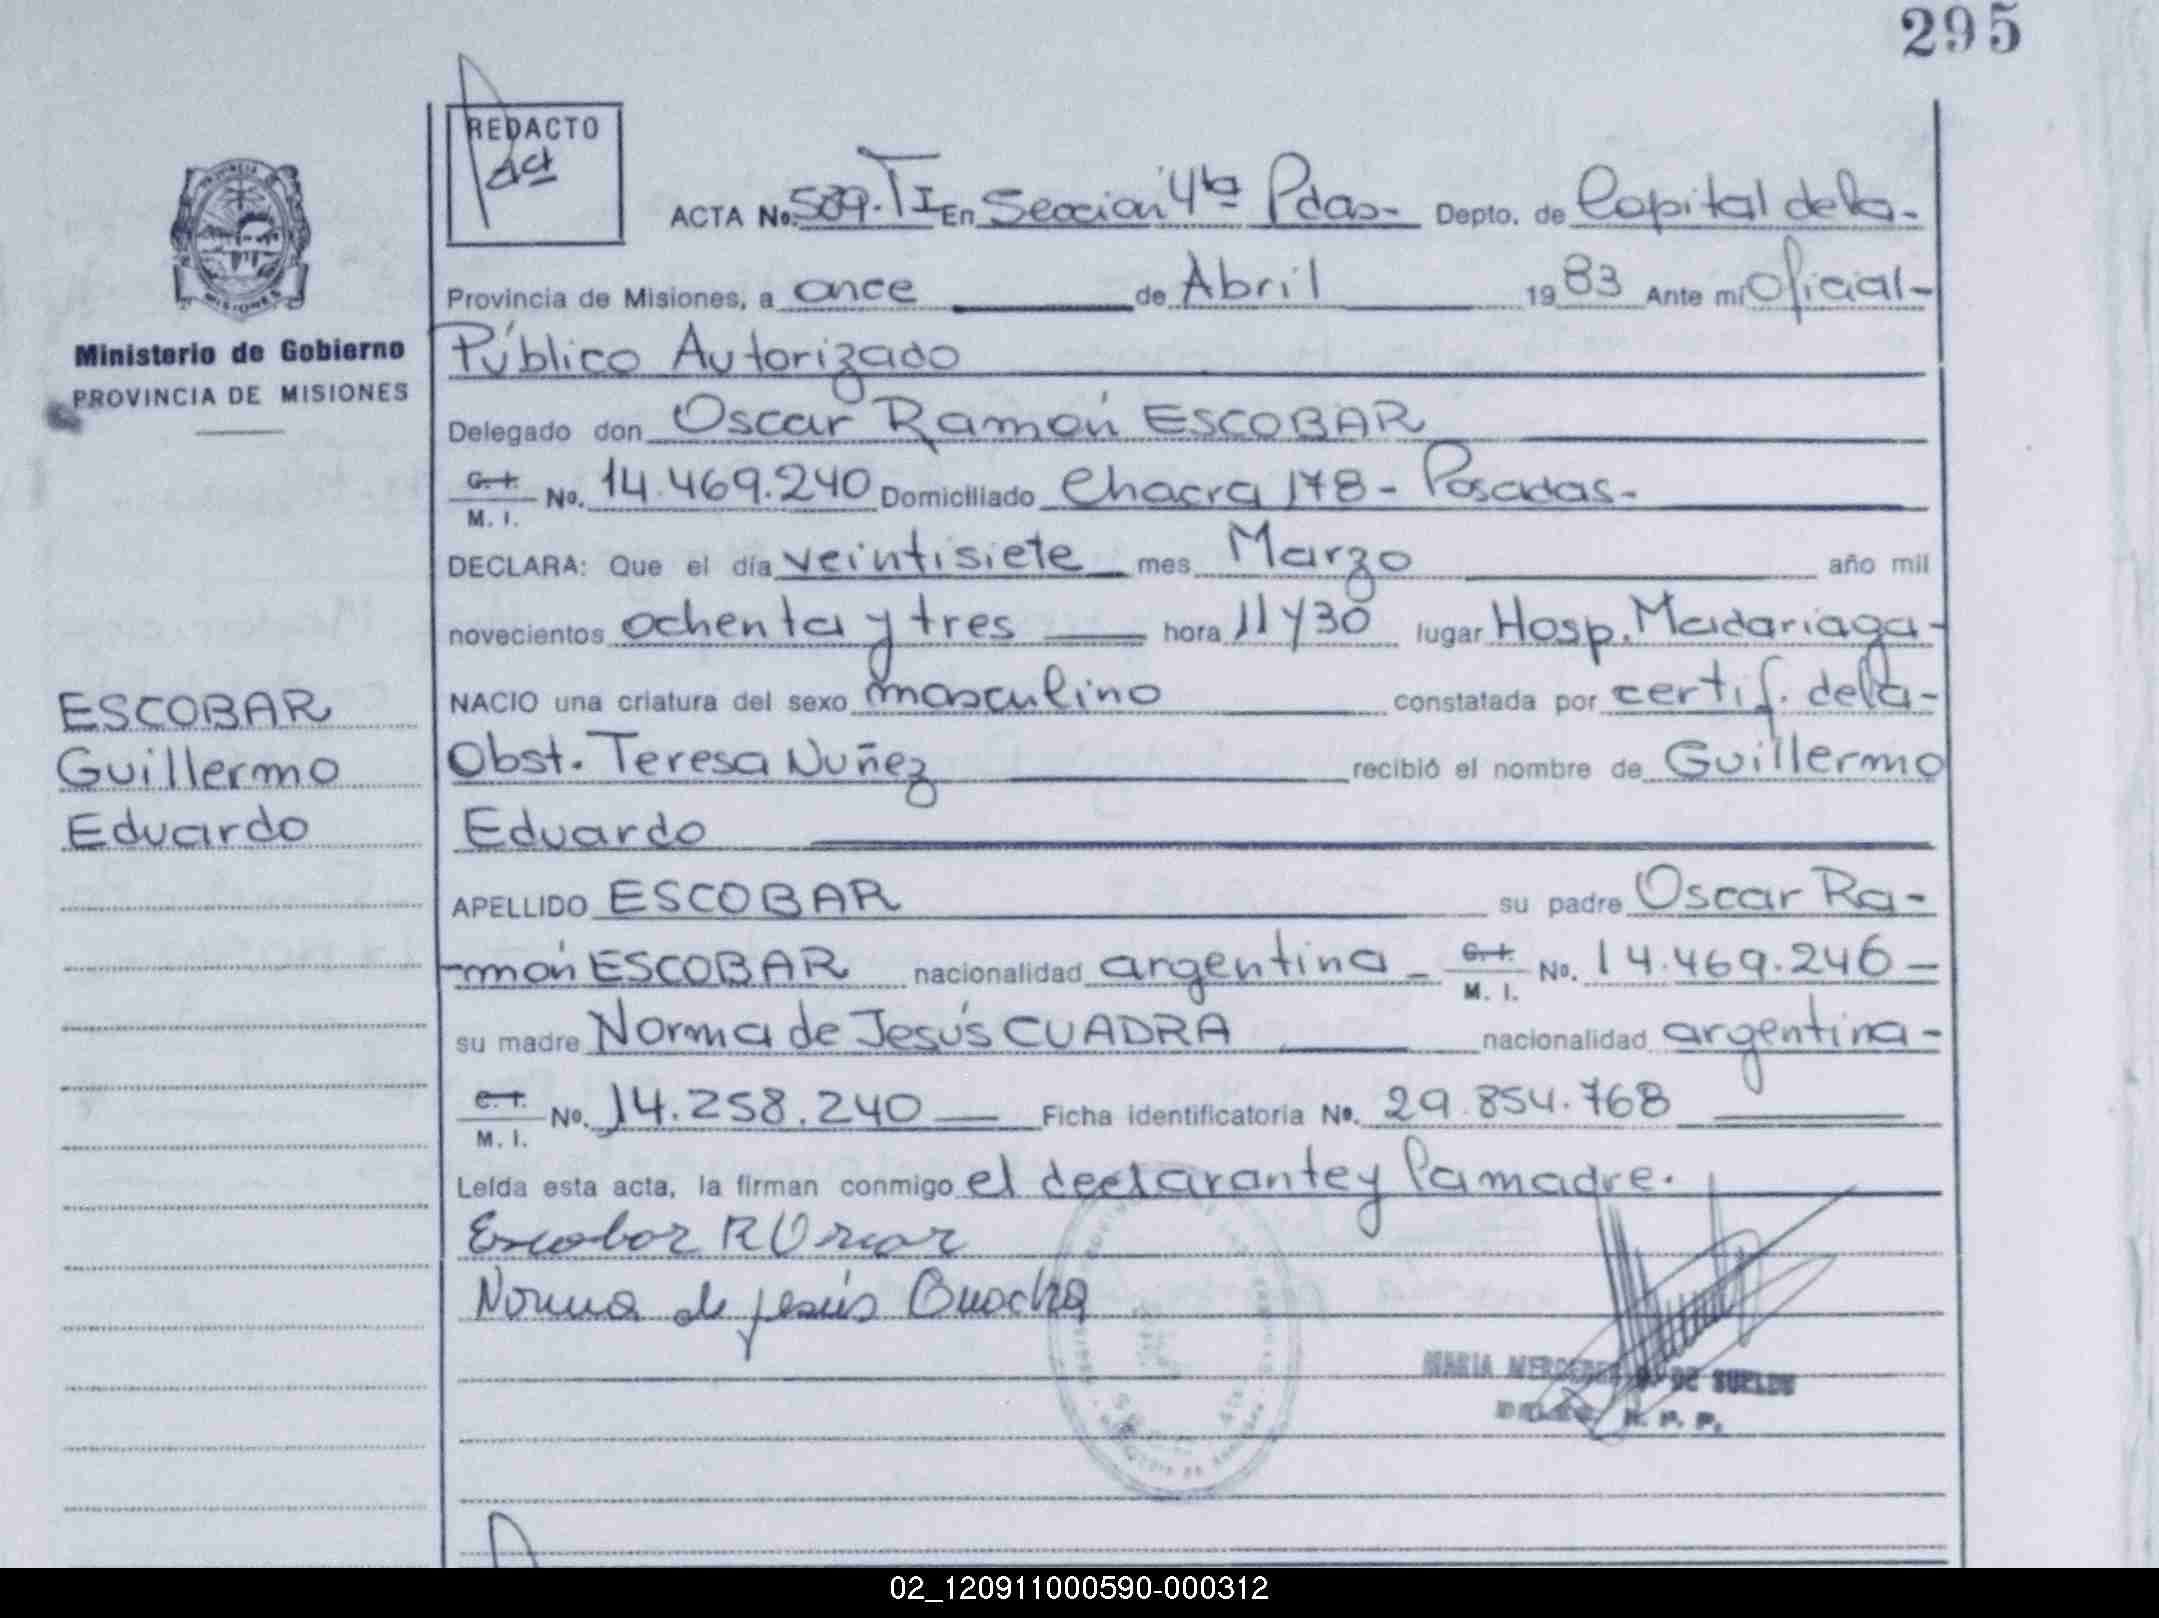 295
REDACTO
ACTA No. 589. TI En Sección 4ta Pdas- Depto. de Capital de la-
Provincia de Misiones, a once de Abril 1983 Ante mi Oficial-
Público Autorizado
Ministerio de Gobierno
PROVINCIA DE MISIONES
Delegado don Oscar Ramón ESCOBAR
C.I. M. I. No. 14.469.240 Domiciliado Chacra 178- Posadas-
DECLARA: Que el día veintisiete mes Marzo año mil
novecientos ochenta y tres hora 11 y 30 lugar Hosp. Madariaga-
NACIO una criatura del sexo masculino constatada por certif. de la-
Obst. Teresa Nuñez recibió el nombre de Guillermo
Eduardo
ESCOBAR
Guillermo
Eduardo
APELLIDO ESCOBAR su padre Oscar Ra-
-món ESCOBAR nacionalidad argentina- C.I. M. I. No. 14.469.246-
su madre Norma de Jesús CUADRA nacionalidad argentina-
C.I. M. I. No. 14.258.240 Ficha identificatoria No. 29.854.768
Leída esta acta, la firman conmigo el declarante y la madre.
Escobar R Oscar
Norma de Jesús Cuadra
MARIA MERCEDES DE SUELDO
R. P. P.
02_120911000590-000312